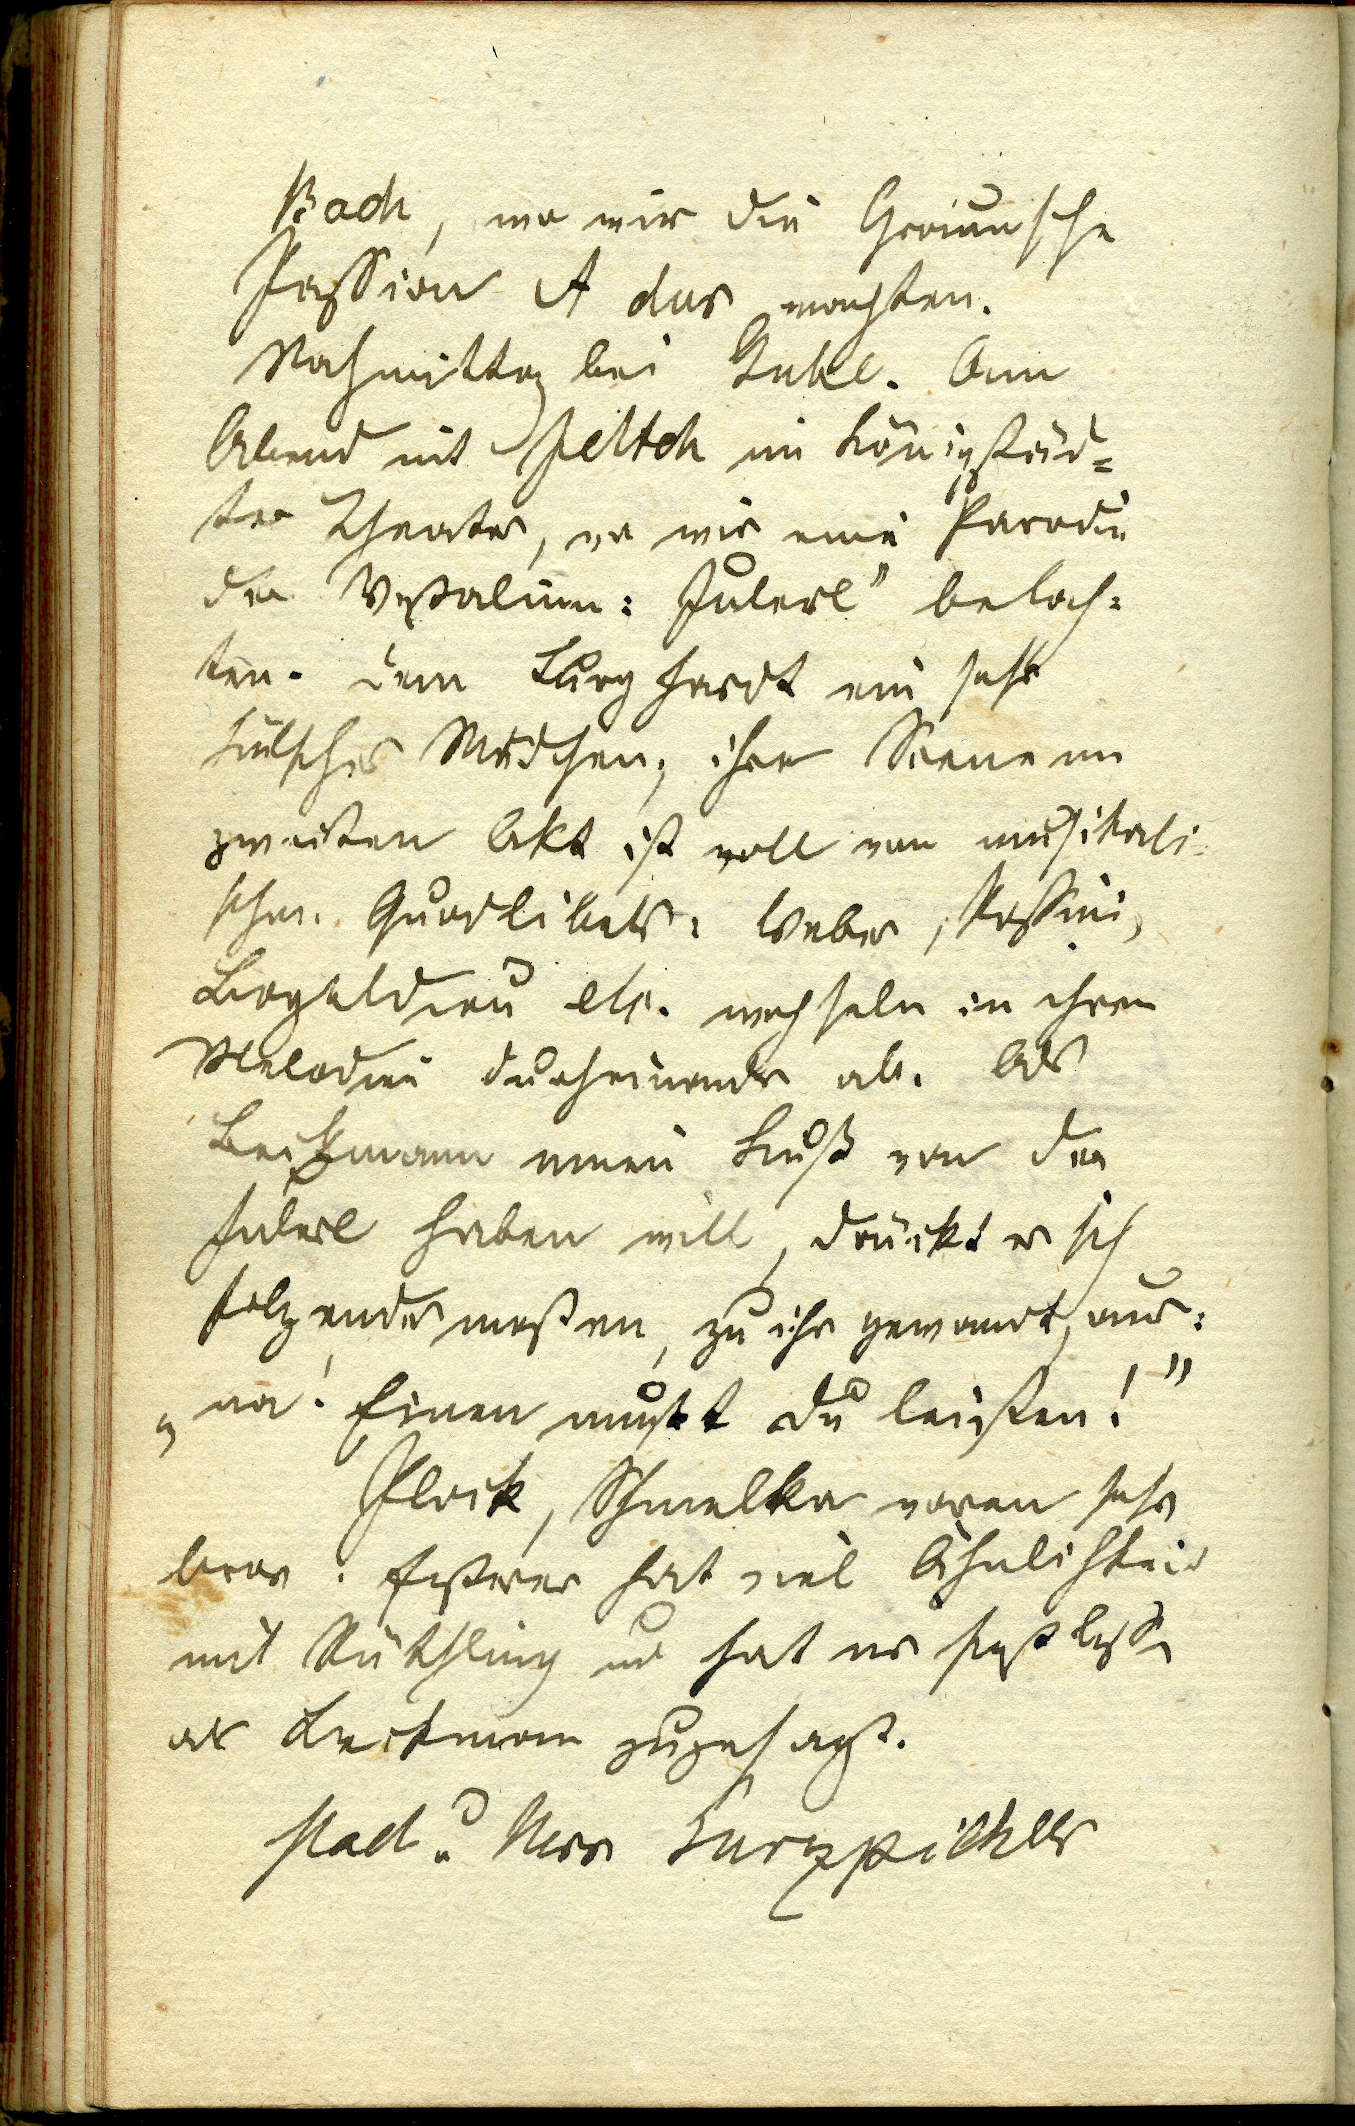 Bach, wo wir die Graunsche
Passion A dur machten.
Nachmittag bei Gabl. Am
Abend mit Peltsch im Königstäd-
ter Theater, wo wir eine Parodie
der Vestalinn: Julerl" belach-
ten. Dem Burghardt ein sehr
hübsches Mädchen; ihre Scene im
zweiten Akt ist voll von musikali-
schen Quodlibets: Weber, Rossini,
Boyeldieu etc. wechseln in ihren
Melodien durcheinander ab. Als
Beckmann einen Kuß von der
Julerl haben will, drückt er sich
folgendermaßen, zu ihr gewandt, aus:
„na! Einen mußt du leisten!"
Plock, Schmelka waren sehr
brav. Ersterer hat viel Ähnlichkeit
mit Rüthling und hat er besser
als Beckmann zugesagt.
Mad. Kurzpichler